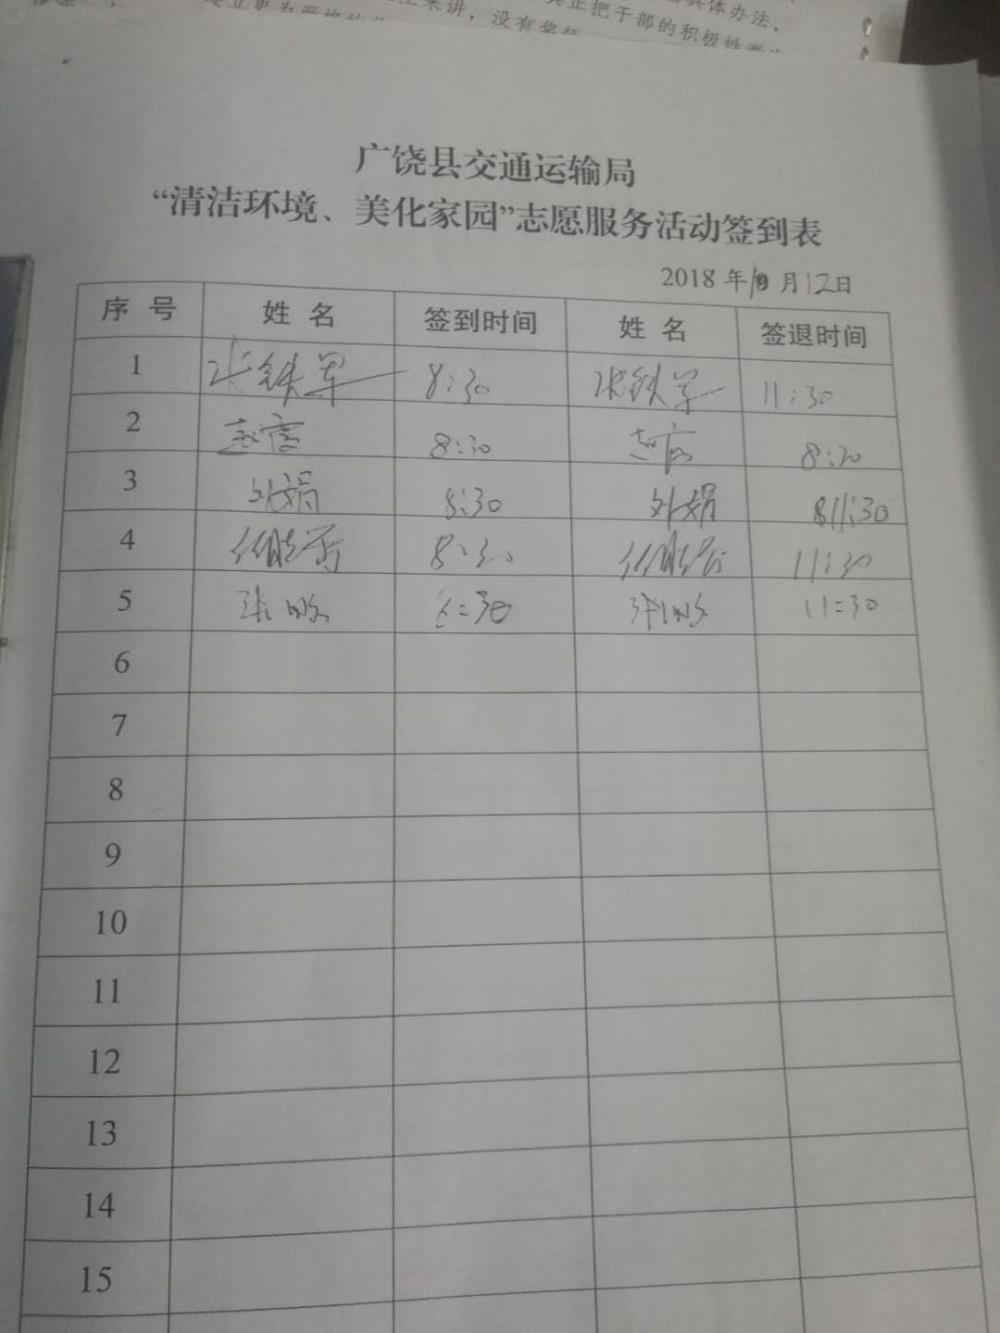 体办法，
来讲，没有
正把干部的积极性
广饶县交通运输局
“清洁环境、美化家园”志愿服务活动签到表
2018 年 月 12 日
序 号 姓 名 签到时间 姓 名 签退时间
1 张铁军 8:30 张铁军 11:30
2 8:30 8:30
3 8:30 11:30
4 8:30 11:30
5 张 :30 张 11:30
6
7
8
9
10
11
12
13
14
15